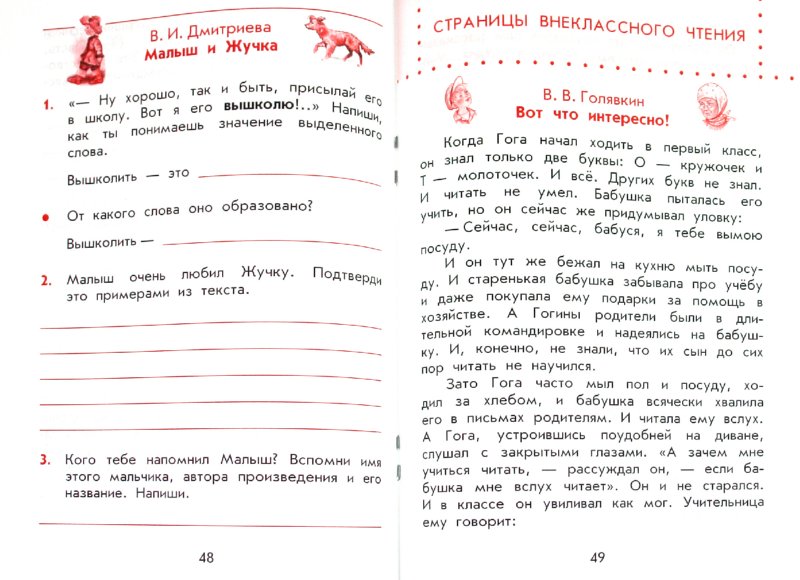 В. И. Дмитриева
Малыш и Жучка
1. «— Ну хорошо, так и быть, присылай его
в школу. Вот я его вышколю!..» Напиши,
как ты понимаешь значение выделенного
слова.
Вышколить — это
• От какого слова оно образовано?
Вышколить —
2. Малыш очень любил Жучку. Подтверди
это примерами из текста.
3. Кого тебе напомнил Малыш? Вспомни имя
этого мальчика, автора произведения и его
название. Напиши.
48
СТРАНИЦЫ ВНЕКЛАССНОГО ЧТЕНИЯ
В. В. Голявкин
Вот что интересно!
Когда Гога начал ходить в первый класс,
он знал только две буквы: О — кружочек и
Т — молоточек. И всё. Других букв не знал.
И читать не умел. Бабушка пыталась его
учить, но он сейчас же придумывал уловку:
— Сейчас, сейчас, бабуся, я тебе вымою
посуду.
И он тут же бежал на кухню мыть посу-
ду. И старенькая бабушка забывала про учёбу
и даже покупала ему подарки за помощь в
хозяйстве. А Гогины родители были в дли-
тельной командировке и надеялись на бабуш-
ку. И, конечно, не знали, что их сын до сих
пор читать не научился.
Зато Гога часто мыл пол и посуду, хо-
дил за хлебом, и бабушка всячески хвалила
его в письмах родителям. И читала ему вслух.
А Гога, устроившись поудобней на диване,
слушал с закрытыми глазами. «А зачем мне
учиться читать, — рассуждал он, — если ба-
бушка мне вслух читает». Он и не старался.
И в классе он увиливал как мог. Учительница
ему говорит:
49